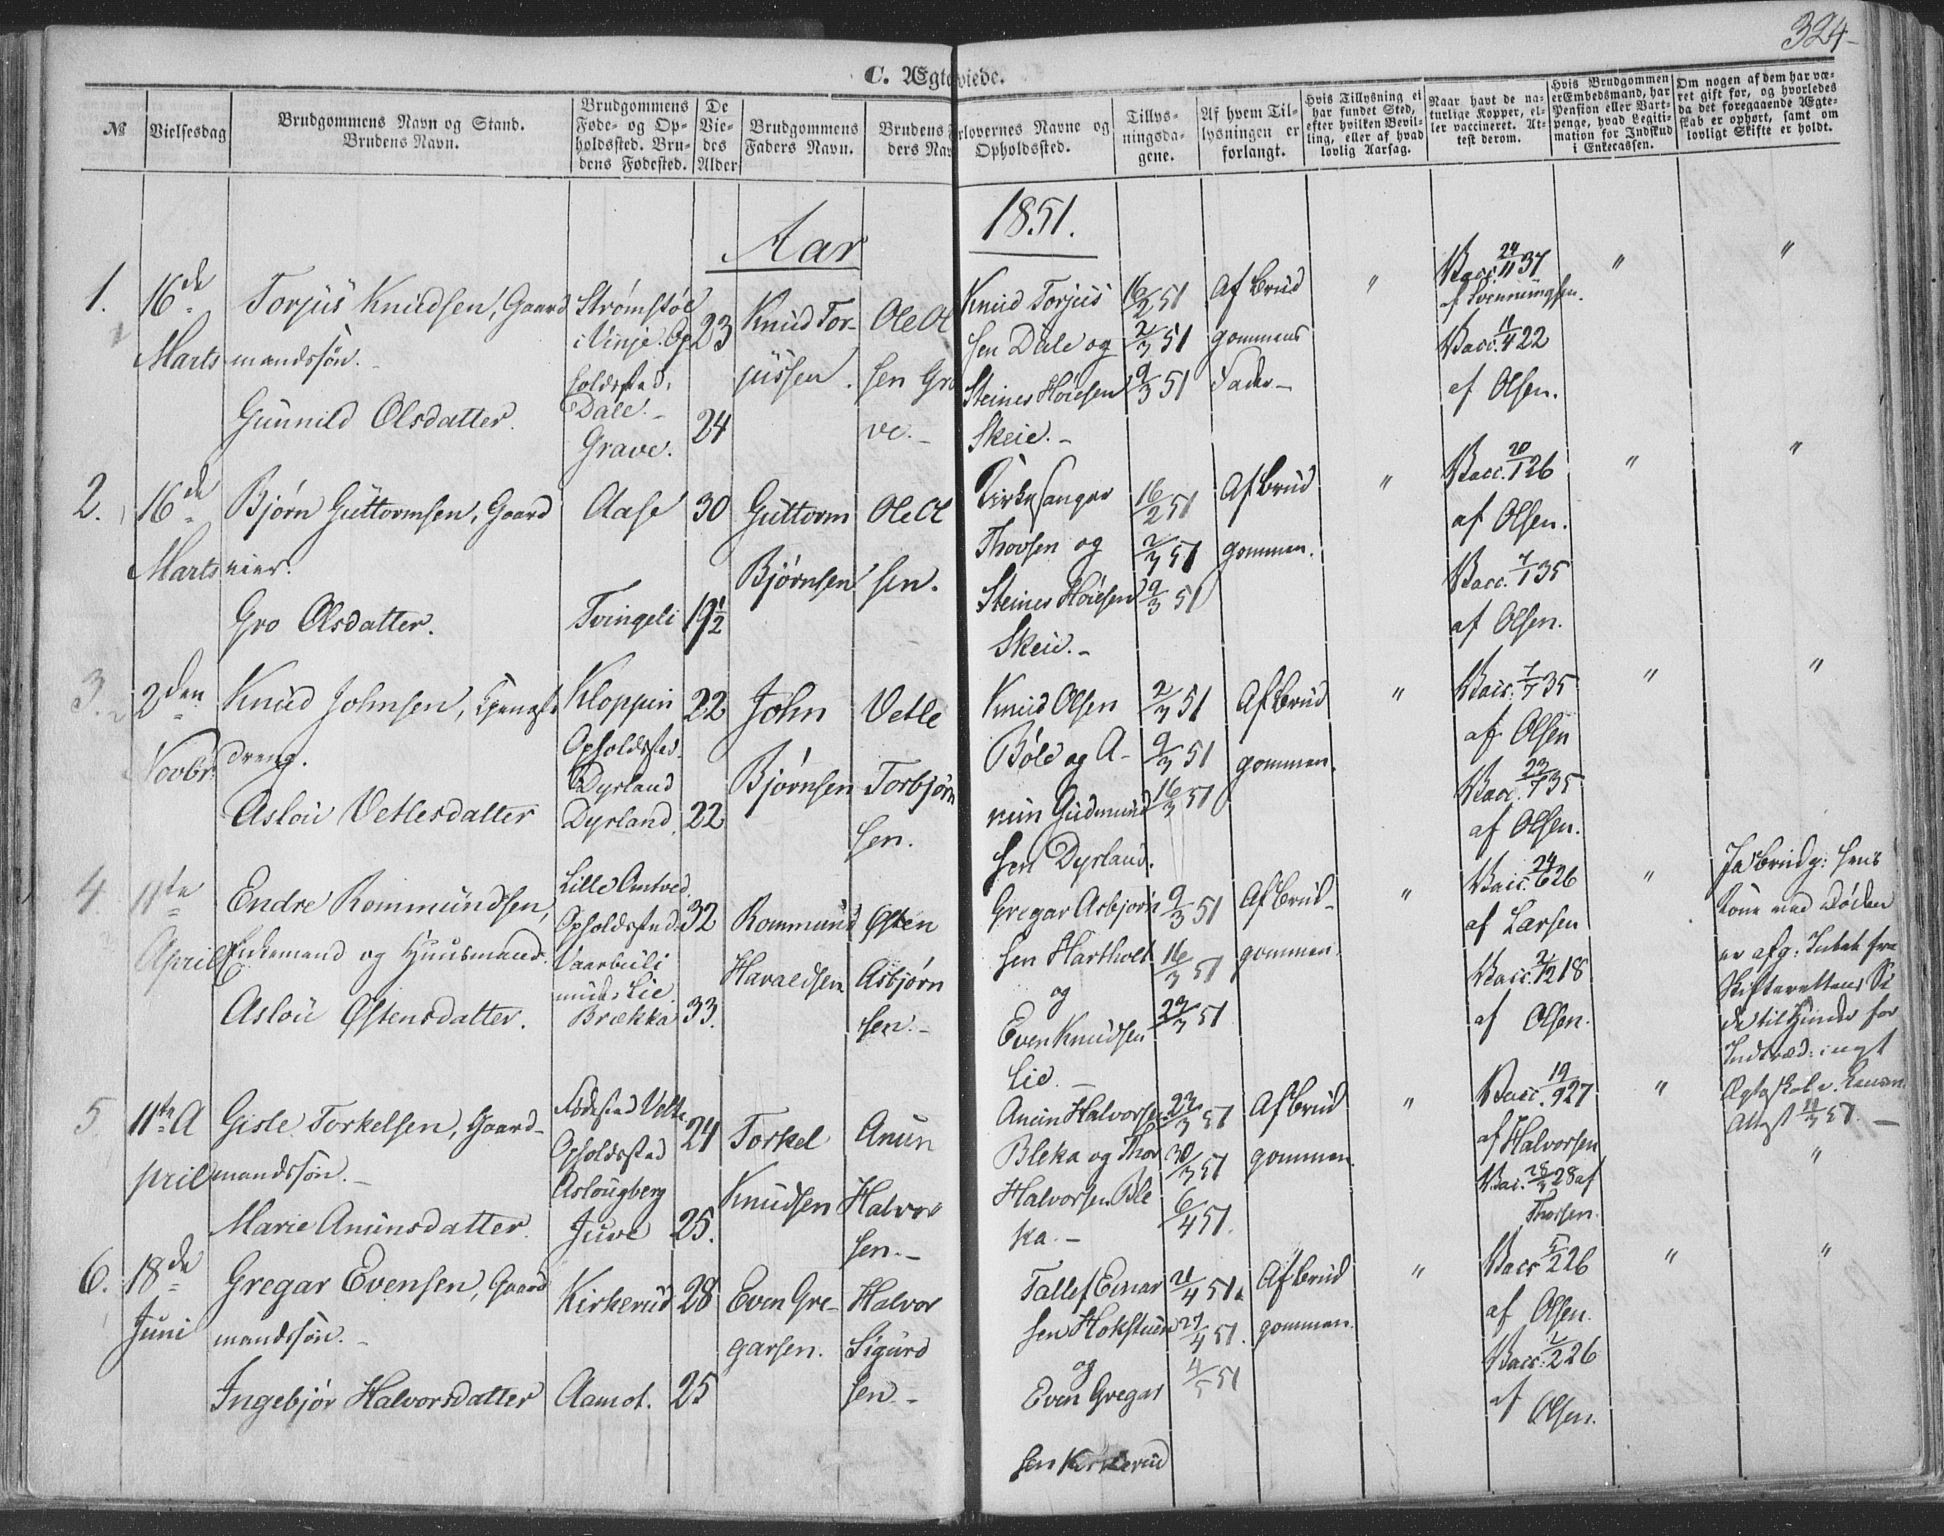 324
C. Ægteviede.
№
Vielsesdag
Brudgommens Navn og Stand.
Brudens Navn.
Brudgommens
Føde- og Op-
holdssted. Bru-
dens Fødested.
De
Vie-
des
Alder
Brudgommens
Faders Navn.
Brudens
ders Nav
rlovernes Navne og
Opholdssted.
Tillys-
ningsda-
gene.
Af hvem Til-
lysningen er
forlangt.
Hvis Tillysning ei
har fundet Sted,
efter hvilken Bevil-
ling, eller af hvad
lovlig Aarsag.
Naar havt de na-
turlige Kopper, el-
ler vaccineret. At-
test derom.
Hvis Brudgommen
er Embedsmand, har
Pension eller Vart-
penge, hvad Legiti-
mation for Indskud
i Enkecassen.
Om nogen af dem har væ-
ret gift før, og hvorledes
da det foregaaende Ægte-
skab er ophørt, samt om
lovligt Skifte er holdt.
Aar 1851.
1.
16de
Marts
Torjus Knudsen, Gaard
mandssøn.
Gunnild Olsdatter.
Strømstøl
i Vinje. Op
holdssted,
Dale.
Grave.
23
24
Knud Tor-
jussen.
Ole Ol
sen Gra
ve.
Knud Torjus
sen Dale og
Steines Høiesen
Skeie.
16/2 51
2/3 51
9/3 51
Af Brud
gommens
Fader
"
Vacc. 24/11 37
af Svenningsen.
Vacc. 11/4 22
af Olsen.
"
"
2.
16de
Marts
Bjørn Guttormsen, Gaard
eier.
Gro Olsdatter.
Aase
Tvingeli
30
19½
Guttorm
Bjørnsen
Ole Ol
sen.
Kirkesanger
Thovsen og
Steines Høiesen
Skeie.
16/2 51
2/3 51
9/3 51
Af Brud
gommen.
"
Vacc. 20/1 26
af Olsen.
Vacc. 7/1 35
af Olsen.
"
"
3.
2den
Novbr.
Knud Johnsen, Tjeneste
dreng.
Aslou Vetlesdatter
Kloppen
Opholdssted
Dyrland
Dyrland.
22
22
John
Bjørnsen
Vetle
Torbjørn
sen.
Knud Olsen
Bøle og A-
nun Gudmund
sen Dyrland.
2/3 51
9/3 51
16/3 51
Af Brud
gommen.
"
Vacc. 7/1 35
af Olsen
Vacc. 23/1 35
af Olsen.
"
"
4.
11te
April
Endre Rommundsen,
Enkemand og Huusmand.
Aslou Østensdatter.
Lille Omtved
Opholdssted
Vaarbuli
under Lie.
Brækka
32
33.
Rommund
Havaldsen
Østen
Asbjørn
sen.
Gregar Asbjørn
sen Hartholt
og
Even Knudsen
Lie.
9/3 51
16/3 51
23/3 51
Af Brud-
gommen.
"
Vacc. 24/6 26
af Larsen
Vacc. 2/12 18
af Olsen.
"
Ja Brudg: hans
Kone ved Døden
er afg: Intet fra
Skifterettens Si
de til Hinder for
Indtræd: i nyt
Ægteskab.
Attest 11/3 51.
5.
11te A
pril
Gisle Torkelsen, Gaard-
mandssøn.
Marie Anunsdatter.
Fødested
Opholdssted
Aslougberg
Juve
24
25.
Torkel
Knudsen
Anun
Halvor
sen.
Anun Halvorsen
Bleka og Thor
Halvorsen Ble
ka.
23/3 51
30/3 51
6/4 51.
Af Brud
gommen.
"
Vacc. 19/9 27
af Halvorsen
Vac. 28/3 28 af
Thorsen.
"
"
6.
18de
Juni
Gregar Evensen, Gaard
mandssøn.
Ingebjør Halvorsdatter
Kirkerud
Aamot.
28
25
Even Gre-
garsen.
Halvor
Sigurd
sen.
Tallef Einar
sen Hokstuen
og
Even Gregar
sen Kirkerud
21/4 51.
27/4 51.
4/5 51
Af Brud
gommen.
"
Vacc 5/2 26
af Olsen.
Vacc. 2/2 26
af Olsen.
"
"